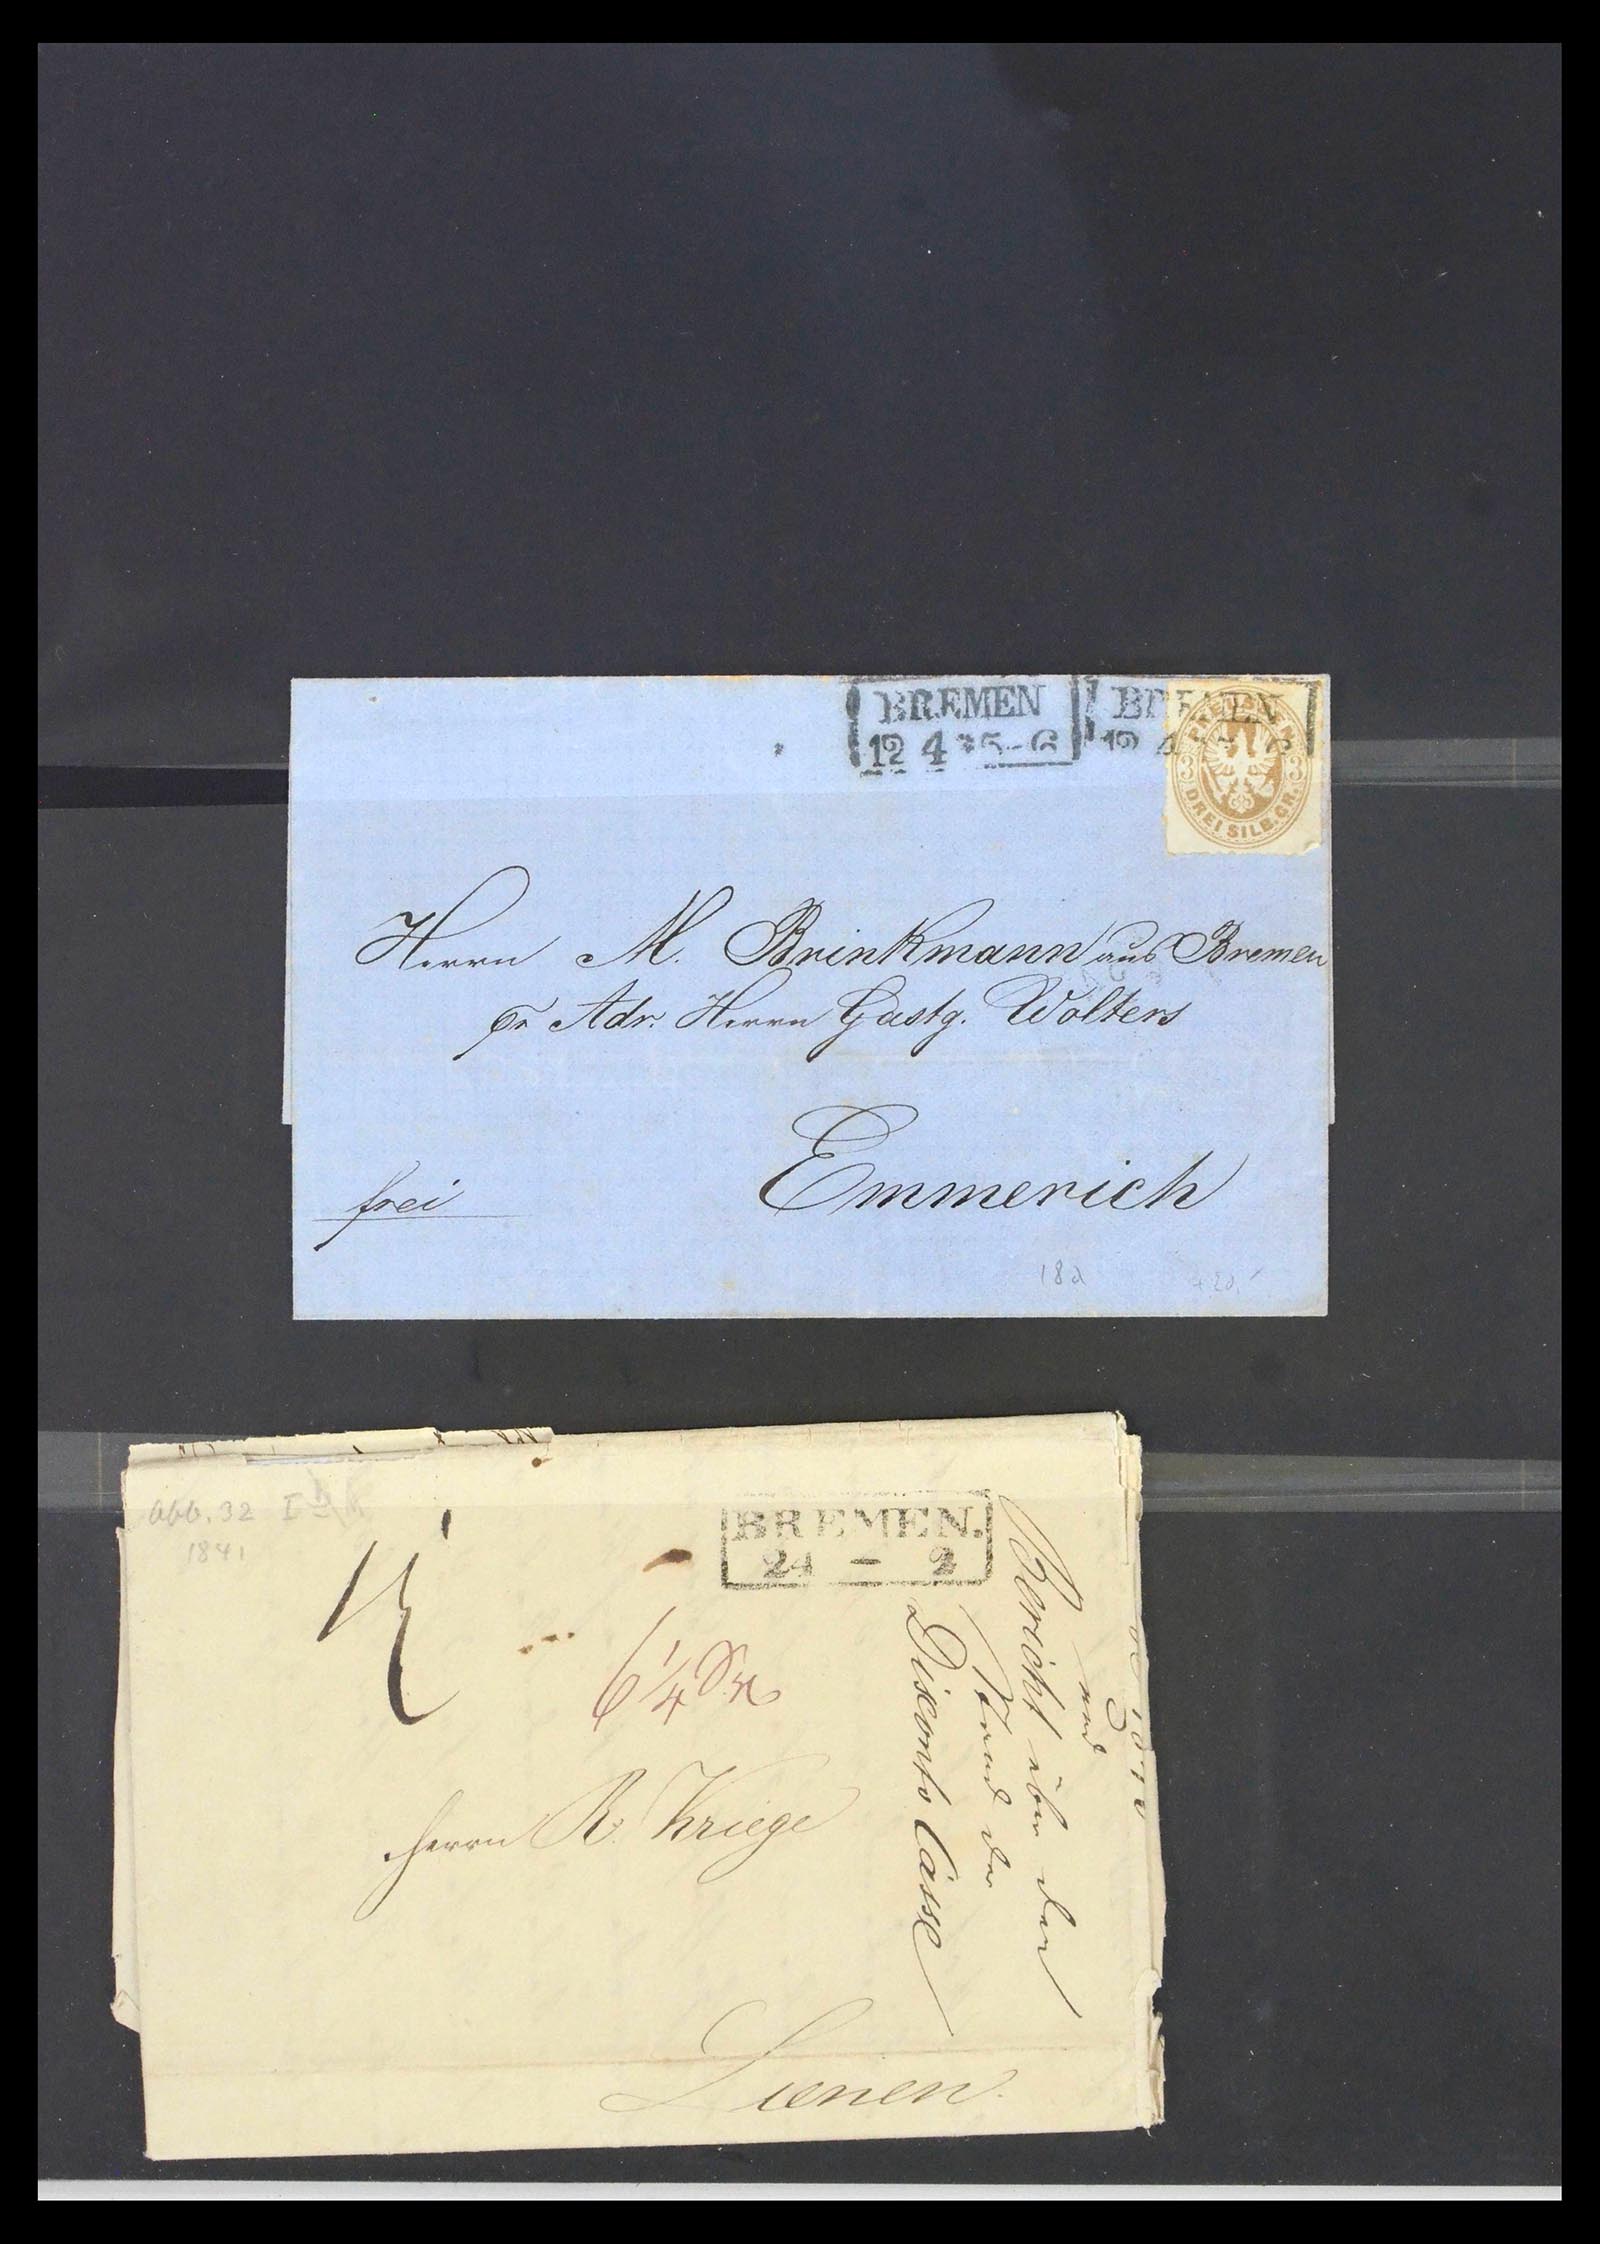 BREMEN BREMEN
12 4 * 5-6 12 4
PREUSSEN
3 3
DREI SILB. GR.
Herrn M. Brinkmann aus Bremen
pr Adr. Herrn Gastg. Wolters
Emmerich
frei
18a
+20,-
Abb. 32 I
1841
BREMEN.
24 - 2
6 1/4 Sgr
Herrn R. Kriege
Lienen.
und
Bericht über den
Stand der
Disconto Casse